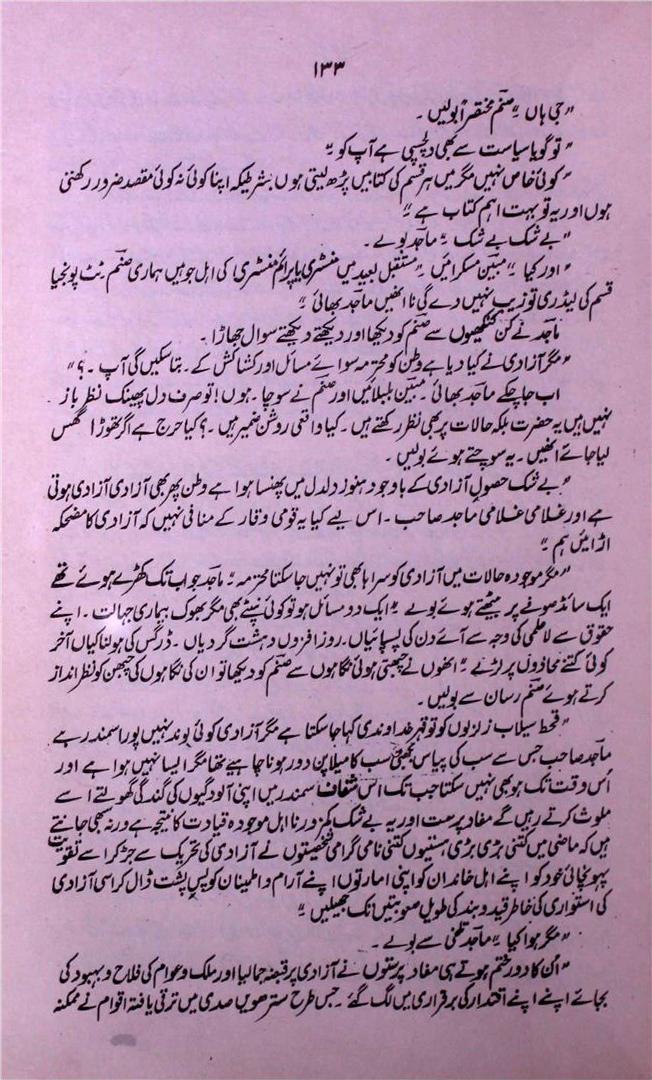 ۱۳۳
”جی ہاں ۔“ صنم مختصراً بولیں ۔
”تو گویا سیاست سے بھی دلچسپی ہے آپ کو ۔“
”کوئی خاص نہیں مگر میں ہر قسم کی کتابیں پڑھ لیتی ہوں بشرطیکہ اپنا کوئی نہ کوئی مقصد ضرور رکھتی
ہوں اور یہ تو بہت اہم کتاب ہے ۔“
”بے شک بے شک ۔“ ماجد بولے ۔
”اور کیا ۔“ مبین مسکرائیں ۔ ”مستقبل بعید میں منسٹری یا پرائم منسٹری کی اہل جو ہیں ہماری صنم نٹ پونجیا
قسم کی لیڈری تو زیب نہیں دے گی نا انھیں ماجد بھائی ۔“
ماجد نے کن انکھیوں سے صنم کو دیکھا اور دیکھتے دیکھتے سوال جھاڑا ۔
”مگر آزادی نے کیا دیا ہے وطن کو محترمہ سوائے مسائل اور کشاکش کے ۔ بتا سکیں گی آپ ۔ ؟“
اب جا چکے ماجد بھائی ۔ مبین بلبلائیں اور صنم نے سوچا ۔ ہوں ! تو صرف دل پھینک نظر باز
نہیں ہیں یہ حضرت بلکہ حالات پر بھی نظر رکھتے ہیں ۔ کیا واقعی روشن ضمیر ہیں ۔ ؟ کیا حرج ہے اگر تھوڑا گھس
لیا جائے انھیں ۔ یہ سوچتے ہوئے بولیں ۔
”بے شک حصولِ آزادی کے باوجود ہنوز دلدل میں پھنسا ہوا ہے وطن پھر بھی آزادی آزادی ہوتی
ہے اور غلامی غلامی ماجد صاحب ۔ اس لیے کیا یہ قومی وقار کے منافی نہیں کہ آزادی کا مضحکہ
اڑائیں ہم ۔“
”مگر موجودہ حالات میں آزادی کو سراہا بھی تو نہیں جا سکتا محترمہ ۔“ ماجد جو اب تک کھڑے ہوئے تھے
ایک سائڈ صوفے پر بیٹھتے ہوئے بولے ۔ ”ایک دو مسائل ہو تو کوئی نپٹے بھی مگر بھوک بیماری جہالت ۔ اپنے
حقوق سے لاعلمی کی وجہ سے آئے دن کی پسپائیاں ۔ روز افزوں دہشت گردیاں ۔ ڈرگس کی ہولناکیاں آخر
کوئی کتنے محاذوں پر لڑے ۔“ انھوں نے چبھتی ہوئی نگاہوں سے صنم کو دیکھا تو ان کی نگاہوں کی چبھن کو نظر انداز
کرتے ہوئے صنم رسان سے بولیں ۔
”قحط سیلاب زلزلوں کو تو قہرِ خداوندی کہا جا سکتا ہے مگر آزادی کوئی بوند نہیں پورا سمندر ہے
ماجد صاحب جس سے سب کی پیاس بجھنی سب کا میلا پن دور ہونا چاہیے تھا مگر ایسا نہیں ہوا ہے اور
اُس وقت تک ہو بھی نہیں سکتا جب تک اس شفاف سمندر میں اپنی آلودگیوں کی گندگی گھولتے اسے
ملوث کرتے رہیں گے مفاد پرست اور یہ بے شک کمزور نا اہل موجودہ قیادت کا نتیجہ ہے ورنہ بھی جانتے
ہیں کہ ماضی میں کتنی بڑی بڑی ہستیوں کتنی نامی گرامی شخصیتوں نے آزادی کی تحریک سے جڑ کر اسے تقویت
پہونچائی خود کو اپنے اہل خاندان کو اپنی امارتوں اپنے آرام و اطمینان کو پسِ پشت ڈال کر اسی آزادی
کی استواری کی خاطر قید و بند کی طویل صعوبتیں تک جھیلیں ۔“
”مگر ہوا کیا ۔“ ماجد تلخی سے بولے ۔
”اُن کا دور ختم ہوتے ہی مفاد پرستوں نے آزادی پر قبضہ جما لیا اور ملک و عوام کی فلاح و بہبود کی
بجائے اپنے اپنے اقتدار کی برقراری میں لگ گئے ۔ جس طرح سترھویں صدی میں ترقی یافتہ اقوام نے ممکنہ